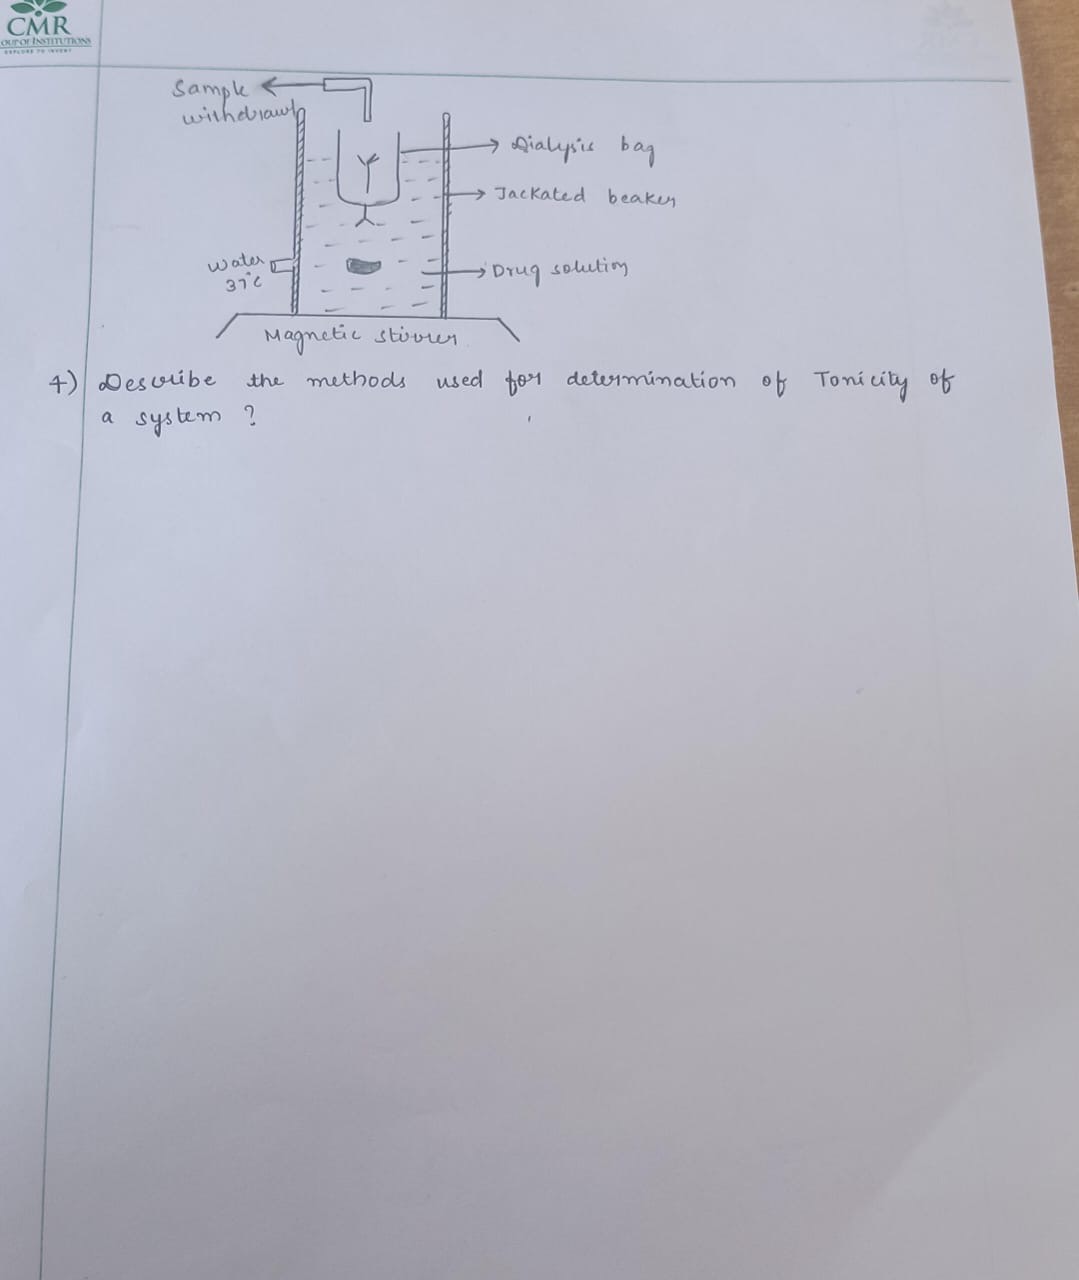 CMR
OUP OF INSTITUTIONS
EXPLORE TO INVENT
Sample
withdrawl
Dialysis bag
Jackated beaker
water
37°C
Drug solution
Magnetic stirrer
4) Describe the methods used for determination of Tonicity of
a system ?